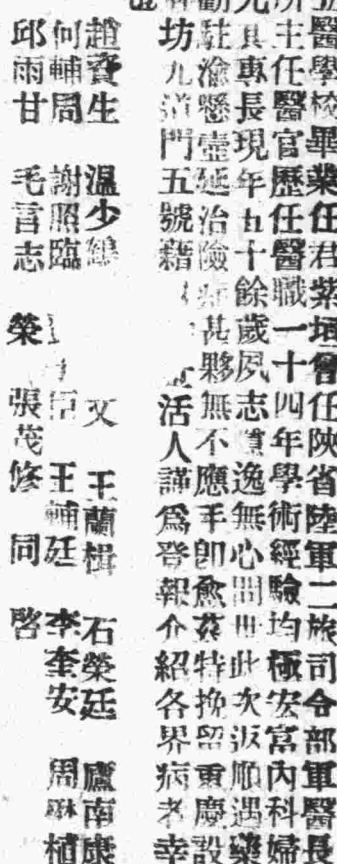 醫學校畢業任君紫垣曾任陝省陸軍二旅司令部軍醫長
所主任醫官歷任醫職一十四年學術經驗均極宏富內科婦
其專長現年五十餘歲夙志逸無心問世此次返順遇藥
勸駐渝懸壺延治險症甚夥無不應手即愈茲特挽留重慶設
坊九道門五號藉 活人謹為登報介紹各界病者幸
趙資生 溫少鶴 文 王蘭楫 石榮廷 盧南康
何輔周 謝照臨 臣 王輔廷 李奎安 周 植
邱雨甘 毛言志 榮 張茂修 同啓